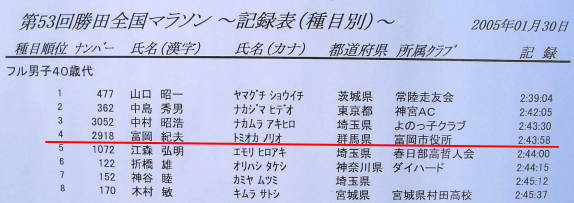 第53回勝田全国マラソン ～記録表（種目別）～ 2005年01月30日
種目順位 ナンバー 氏名（漢字） 氏名（カナ） 都道府県 所属クラブ 記 録
フル男子４０歳代
1 477 山口 昭一 ヤマグチ ショウイチ 茨城県 常陸走友会 2:39:04
2 362 中島 秀男 ナカジマ ヒデオ 東京都 神宮ＡＣ 2:42:05
3 3052 中村 昭浩 ナカムラ アキヒロ 埼玉県 よのっ子クラブ 2:43:30
4 2918 富岡 紀夫 トミオカ ノリオ 群馬県 富岡市役所 2:43:58
5 1072 江森 弘明 エモリ ヒロアキ 埼玉県 春日部高哲人会 2:44:00
6 122 折橋 雄 オリハシ タケシ 神奈川県 ダイハード 2:44:15
7 152 神谷 睦 カミヤ ムツミ 埼玉県 2:45:12
8 170 木村 敏 キムラ サトシ 宮城県 宮城県村田高校 2:45:37